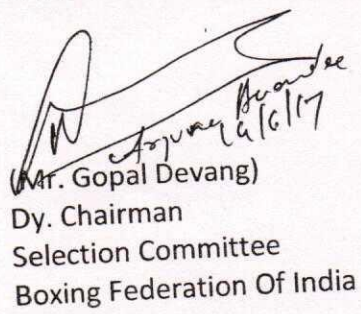 Arjuna Awardee
19/6/17
(Mr. Gopal Devang)
Dy. Chairman
Selection Committee
Boxing Federation Of India